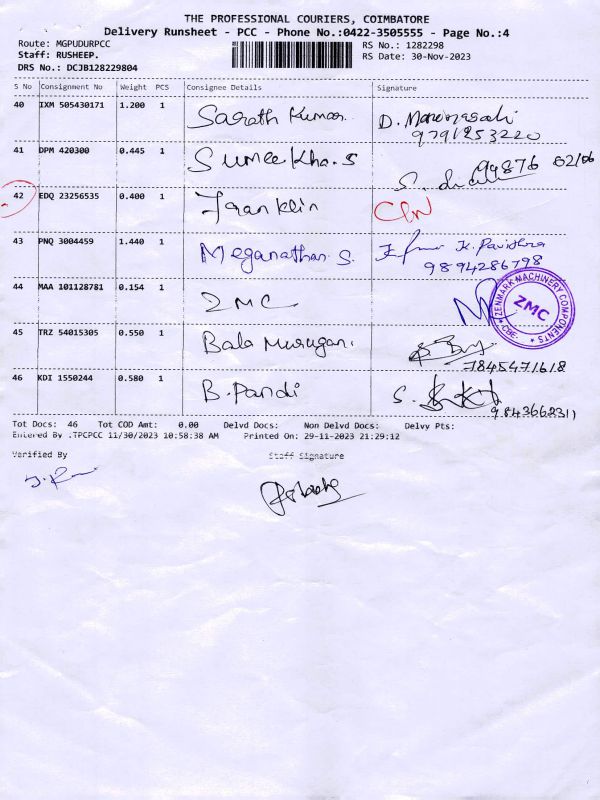 THE PROFESSIONAL COURIERS, COIMBATORE
Delivery Runsheet - PCC - Phone No.:0422-3505555 - Page No.:4
Route: MGPUDURPCC
Staff: RUSHEEP.
DRS No.: DCJB128229804
RS No.: 1282298
RS Date: 30-Nov-2023
S No Consignment No Weight PCS Consignee Details Signature
40 IXM 505430171 1.200 1 Sarath Kumar D. Manonasali
9791253220
41 DPM 420300 0.445 1 Sumeekha.S 99876 02/06
42 EDQ 23256535 0.400 1 Franklin
43 PNQ 3004459 1.440 1 Meganathan S. K. Pavithra
9894286798
44 MAA 101128781 0.154 1 ZMC
ZENMARK MACHINERY COMPONENTS
ZMC
CBE
45 TRZ 54015305 0.550 1 Bala Murugan.
7845471618
46 KDI 1550244 0.580 1 B. Pandi S.
9843668311
Tot Docs: 46 Tot COD Amt: 0.00 Delvd Docs: Non Delvd Docs: Delvy Pts:
Entered By .TPCPCC 11/30/2023 10:58:38 AM Printed On: 29-11-2023 21:29:12
Verified By Staff Signature